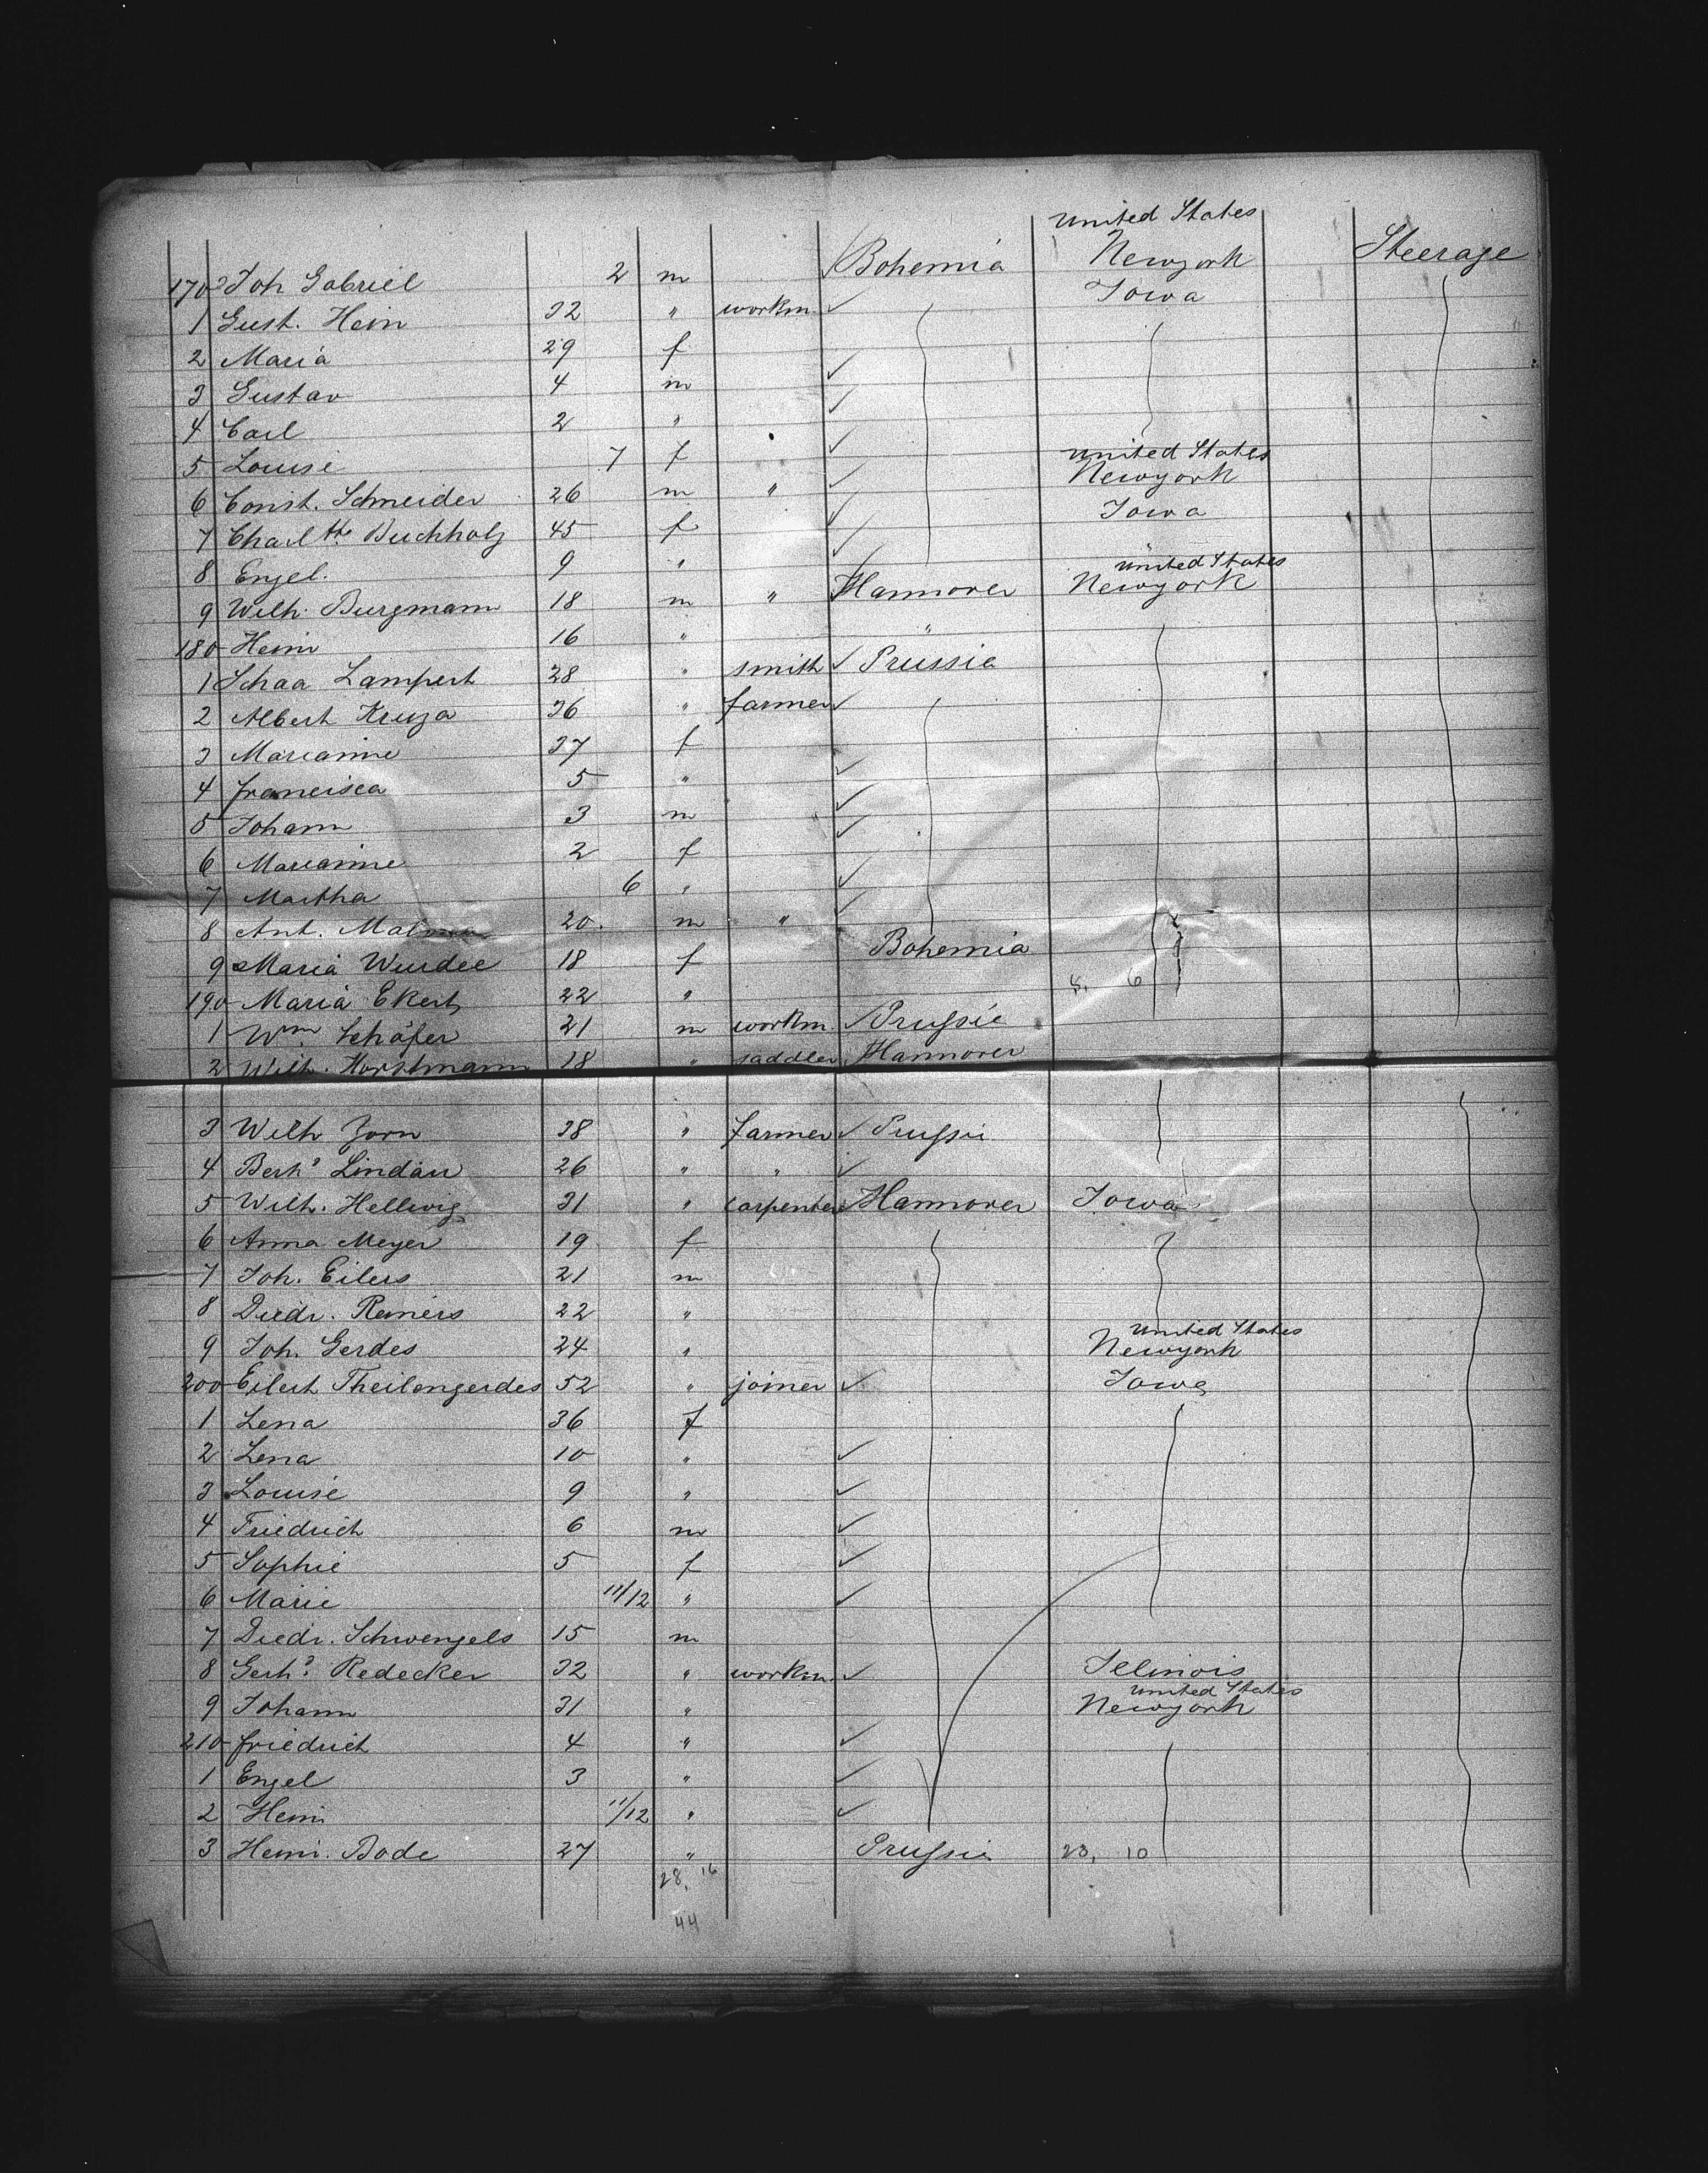 United States
170 Joh Gabriel 2 m Bohemia Newyork Steerage
1 Gust. Hein 32 " workm. Iowa
2 Maria 29 f
3 Gustav 4 m
4 Carl 2 "
5 Louise 7 f United States
6 Const. Schneider 26 m " Newyork
7 Charltte Buchholz 45 f Iowa
8 Engel. 9 " United States
9 Wilh. Burgmann 18 m " Hannover Newyork
180 Heinr 16 " "
1 Schaa Lampert 28 " smith Prussia
2 Albert Kruza 36 " farmer
3 Marianne 37 f
4 Francisca 5 "
5 Johann 3 m
6 Marianne 2 f
7 Martha 6 "
8 Ant. 20. m "
9 Maria Wurdee 18 f Bohemia
190 Maria Ekert 22 " 8, 6
1 Wm. Schäfer 21 m workm. Prussia
2 Wilh. Horstmann 18 " saddler Hannover
3 Wilh Zorn 38 " farmer Prussi
4 Berhd Lindau 26 " "
5 Wilh. Hellwig 31 " carpenter Hannover Iowa
6 Anna Meyer 19 f
7 Joh. Eilers 21 m
8 Diedr. Reiners 22 "
United States
9 Joh. Gerdes 24 " Newyork
200 Eilert Theilengerdes 52 " joiner Iowa
1 Lena 36 f
2 Lena 10 "
3 Louise 9 "
4 Friedrich 6 m
5 Sophie 5 f
6 Marie 11/12 "
7 Diedr. Schwengels 15 m
8 Gerhd. Redecker 32 " workm. Illinois
United States
9 Johann 31 " Newyork
210 Friedrich 4 "
1 Engel 3 "
2 Heinr 11/12 "
3 Heinr. Bode 27 " Prussia 23, 10
28, 16
44